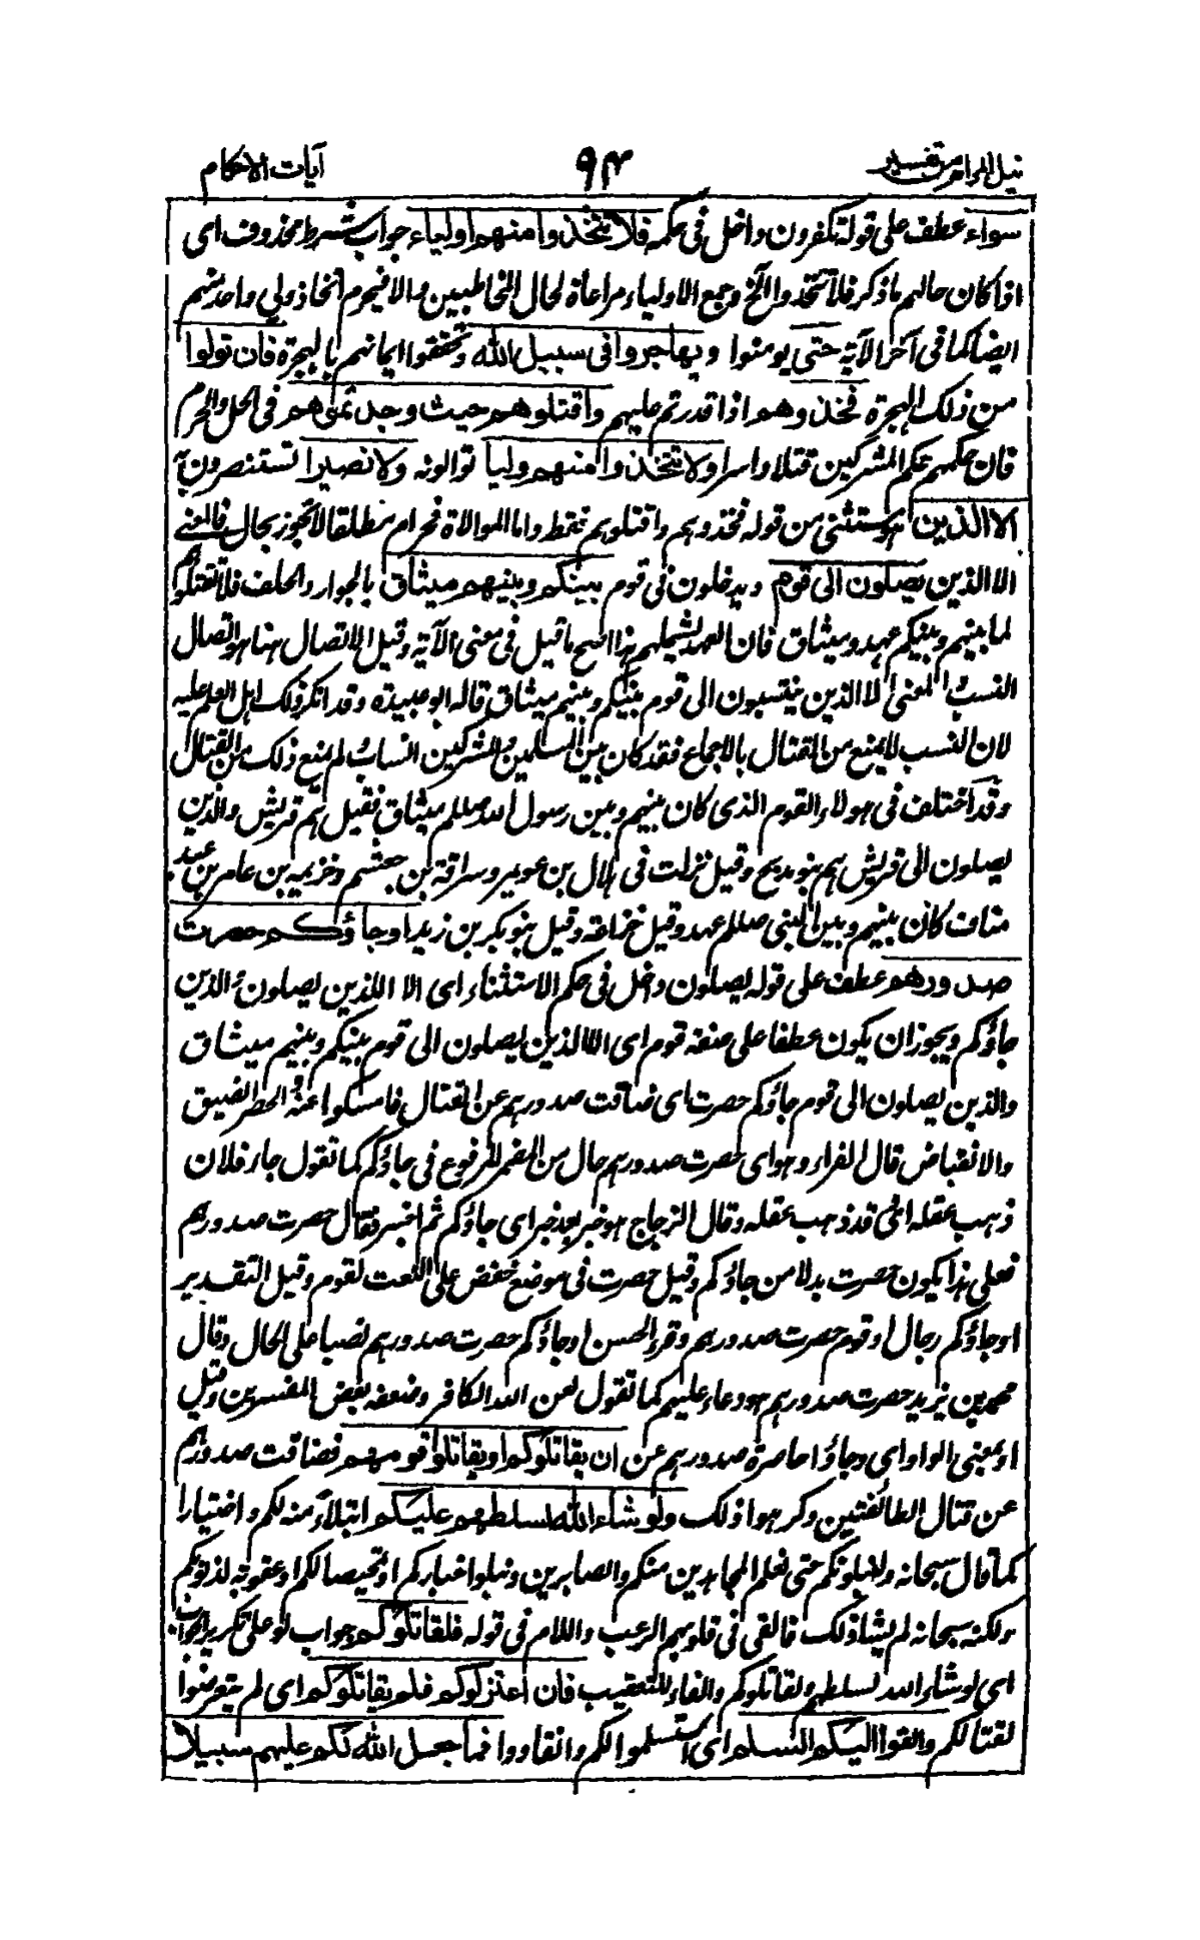 نيل المرام من تفسير ٩٤ آيات الاحكام
سواء عطف على قوله تكفرون داخل فى حكمه فلا تتخذوا منهم اولياء جواب شرط محذوف اى
اذا كان حالهم ما ذكر فلا تتخذوا الخ وجمع الاولياء مراعاة لحال المخاطبين والا فيحرم اتخاذ ولى واحد منهم
ايضا كما فى آخر الآية حتى يومنوا ويهاجروا فى سبيل الله وتحققوا ايمانهم بالهجرة فان تولوا
من ذلك الهجرة فخذوهم اذا قدرتم عليهم واقتلوهم حيث وجدتموهم فى الحل والحرم
فان حكمهم حكم المشركين قتلا واسرا ولا تتخذوا منهم وليا توالونه ولا نصيرا تستنصرون به
الا الذين هو مستثنى من قوله فخذوهم واقتلوهم فقط واما الموالاة فحرام مطلقا لا تجوز بحال فالمعنى
الا الذين يصلون الى قوم ويدخلون فى قوم بينكم وبينهم ميثاق بالجوار والحلف فلا تقتلوهم
لما بينهم وبينكم عهد وميثاق فان العهد يشملهم هذا اصح ما قيل فى معنى الآية وقيل الاتصال هنا هو اتصال
النسب والمعنى الا الذين ينتسبون الى قوم بينكم وبينهم ميثاق قاله ابو عبيدة وقد انكر ذلك اهل العلم عليه
لان النسب لا يمنع من القتال بالاجماع فقد كان بين المسلمين والمشركين انساب ولم يمنع ذلك من القتال
وقد اختلف فى هولاء القوم الذى كان بينهم وبين رسول الله صللم ميثاق فقيل هم قريش والذين
يصلون الى قريش هم بنو مدلج وقيل نزلت فى هلال بن عويمر وسراقة بن جعشم وخزيمة بن عامر بن عبد
مناف كان بينهم وبين النبى صللم عهد وقيل خزاعة وقيل بنو بكر بن زيد او جاؤكم حصرت
صدورهم عطف على قوله يصلون داخل فى حكم الاستثناء اى الا الذين يصلون والذين
جاؤكم ويجوز ان يكون عطفا على صفة قوم اى الا الذين يصلون الى قوم بينكم وبينهم ميثاق
والذين يصلون الى قوم جاؤكم حصرت اى ضاقت صدورهم عن القتال فامسكوا عنه والحصر الضيق
والانقباض قال الفراء وهو اى حصرت صدورهم حال من المضمر المرفوع فى جاؤكم كما تقول جاء فلان
ذهب عقله اى قد ذهب عقله وقال الزجاج هو خبر بعد خبر اى جاؤكم ثم اخبر فقال حصرت صدورهم
فعلى هذا يكون حصرت بدلا من جاؤكم وقيل حصرت فى موضع خفض على النعت لقوم وقيل التقدير
او جاؤكم رجال او قوم حصرت صدورهم وقرأ الحسن او جاؤكم حصرت صدورهم نصبا على الحال وقال
محمد بن يزيد حصرت صدورهم هو دعاء عليهم كما تقول لعن الله الكافر وضعفه بعض المفسرين وقيل
او بمعنى الواو اى وجاؤا حاصرة صدورهم عن ان يقاتلوكم او يقاتلوا قومهم فضاقت صدورهم
عن قتال الطائفتين وكرهوا ذلك ولو شاء الله لسلطهم عليكم ابتلاء منه لكم واختيارا
كما قال سبحانه ولنبلونكم حتى نعلم المجاهدين منكم والصابرين ونبلوا اخباركم او تمحيصا لكم او عقوبة لذنوبكم
ولكنه سبحانه لم يشأ ذلك فالقى فى قلوبهم الرعب واللام فى قوله فلقاتلوكم جواب لو على تكرير الجواب
اى لو شاء الله لسلطهم ولقاتلوكم والفاء للتعقيب فان اعتزلوكم فلم يقاتلوكم اى لم يتعرضوا
لقتالكم والقوا اليكم السلم اى استسلموا لكم وانقادوا فما جعل الله لكم عليهم سبيلا